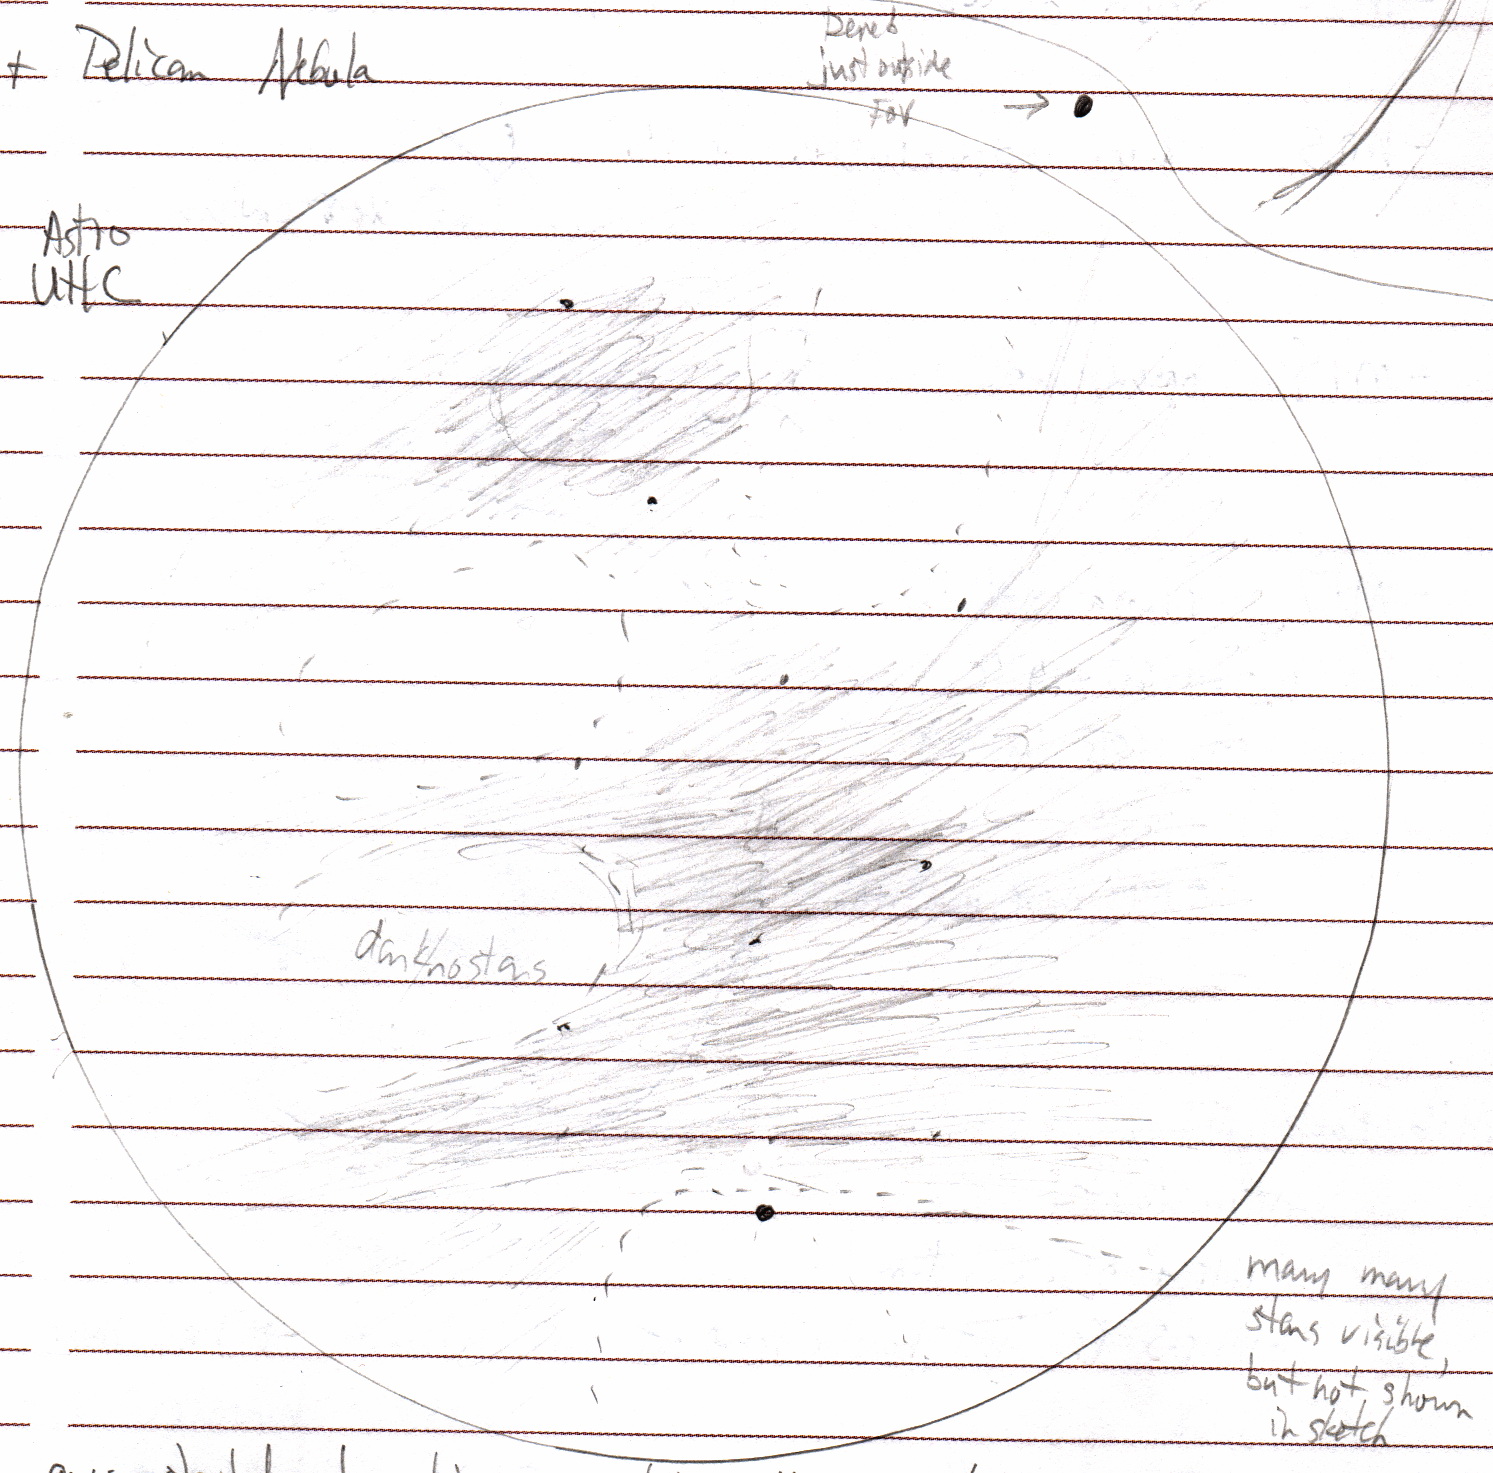 + Pelican Nebula
Deneb
just outside
FOV
→
Astro
UHC
dark/no stars
many many
stars visible,
but not shown
in sketch